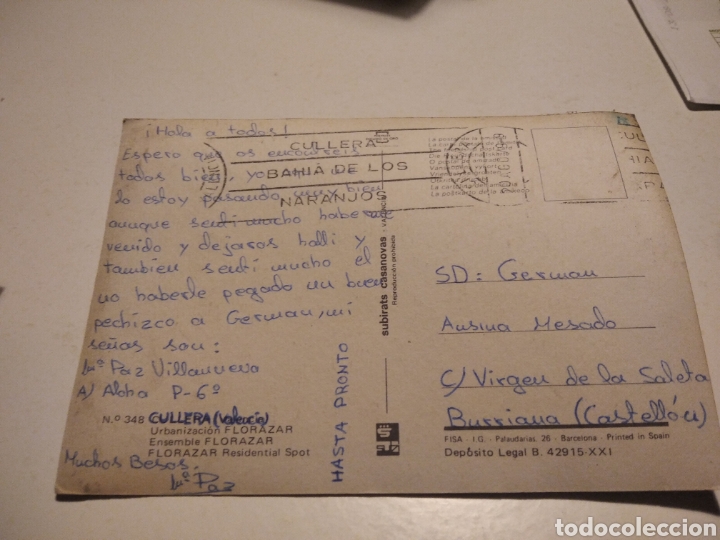 ¡Hola a todos!
Espero que os encontreis
todos bien, yo
lo estoy pasando muy bien
aunque sentí mucho haberme
venido y dejaros halli y
tambien sentí mucho el
no haberle pegado un buen
pechizco a German, mi
señas son:
Mª Paz Villanueva
A) Aloha P-6º
CULLERA (Valencia)
Muchos Besos.
Mª Paz
HASTA PRONTO
N.º 348 CULLERA
Urbanización FLORAZAR
Ensemble FLORAZAR
FLORAZAR Residential Spot
CULLERA
BAHIA DE LOS
NARANJOS
subirats casanovas - VALENCIA
Reproducción prohibida
SD: German
Ausina Mesado
C/ Virgen de la Saleta
Burriana (Castellón)
FISA - I G. - Palaudarias, 26 - Barcelona - Printed in Spain
Depósito Legal B. 42915-XXI
todocoleccion